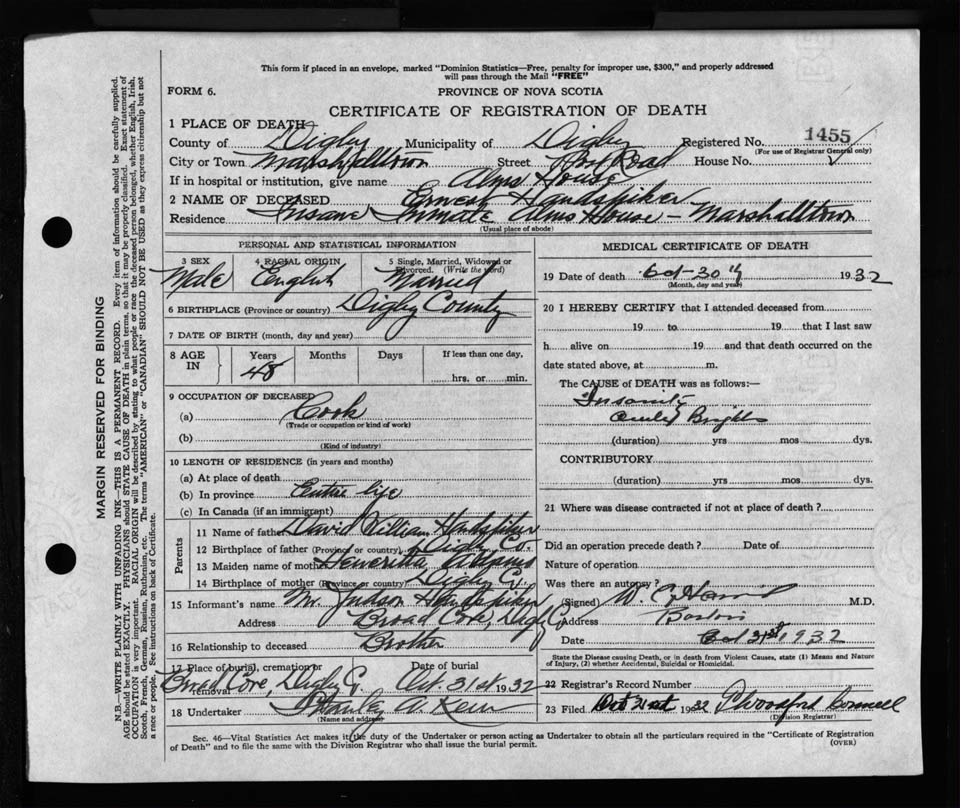 This form if placed in an envelope, marked "Dominion Statistics—Free, penalty for improper use, $300," and properly addressed
will pass through the Mail "FREE"
FORM 6.
PROVINCE OF NOVA SCOTIA
CERTIFICATE OF REGISTRATION OF DEATH
1 PLACE OF DEATH
1455
County of Digby Municipality of Digby Registered No.
(For use of Registrar General only)
City or Town Marshalltown Street Road House No.
If in hospital or institution, give name Alms House
2 NAME OF DECEASED Ernest Handspiker
Residence Insane Inmate Alms House - Marshalltown
(Usual place of abode)
PERSONAL AND STATISTICAL INFORMATION
3 SEX 4 RACIAL ORIGIN 5 Single, Married, Widowed or
Divorced. (Write the word)
Male English Married
6 BIRTHPLACE (Province or country) Digby County
7 DATE OF BIRTH (month, day and year)
8 AGE IN Years Months Days If less than one day,
48 hrs. or min.
9 OCCUPATION OF DECEASED
(a) Cook
(Trade or occupation or kind of work)
(b)
(Kind of industry)
10 LENGTH OF RESIDENCE (in years and months)
(a) At place of death
(b) In province Entire life
(c) In Canada (if an immigrant)
Parents
11 Name of father David William Handspiker
12 Birthplace of father (Province or country) Digby Co.
13 Maiden name of mother Adams
14 Birthplace of mother (Province or country) Digby Co.
15 Informant's name Mr. Judson Handspiker
Address Broad Cove, Digby Co
16 Relationship to deceased Brother
17 Place of burial, cremation or removal Date of burial
Broad Cove, Digby Co Oct. 31st 1932
18 Undertaker A.
(Name and address)
MEDICAL CERTIFICATE OF DEATH
19 Date of death Oct-30th 1932
(Month, day and year)
20 I HEREBY CERTIFY that I attended deceased from
19 to 19 that I last saw
h alive on 19 and that death occurred on the
date stated above, at m.
The CAUSE of DEATH was as follows:—
Insanity
Brights
(duration) yrs mos dys.
CONTRIBUTORY
(duration) yrs mos dys.
21 Where was disease contracted if not at place of death?
Did an operation precede death? Date of
Nature of operation
Was there an autopsy?
(Signed) W. M.D.
Address
Date Oct 31st 1932
State the Disease causing Death, or in death from Violent Causes, state (1) Means and Nature
of Injury, (2) whether Accidental, Suicidal or Homicidal.
22 Registrar's Record Number
23 Filed Oct 1932
(Division Registrar)
Sec. 46—Vital Statistics Act makes it the duty of the Undertaker or person acting as Undertaker to obtain all the particulars required in the "Certificate of Registration
of Death" and to file the same with the Division Registrar who shall issue the burial permit.
(OVER)
MARGIN RESERVED FOR BINDING
N.B.—WRITE PLAINLY WITH UNFADING INK—THIS IS A PERMANENT RECORD. Every item of information should be carefully supplied.
AGE should be stated EXACTLY. PHYSICIANS should STATE CAUSE OF DEATH in plain terms, so that it may be properly classified. Exact statement of
OCCUPATION is very important. RACIAL ORIGIN will be described by stating to what people or race the deceased person belonged, whether English, Irish,
Scotch, French, German, Russian, Ruthenian, etc. The terms "AMERICAN" or "CANADIAN" SHOULD NOT BE USED as they express citizenship but not
a race or people. See instructions on back of Certificate.